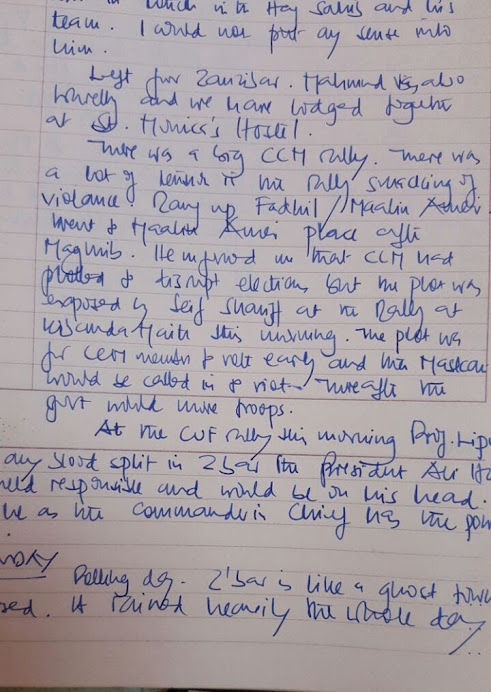 in which the Hay Salus and his
team. I could not put any sense into
him.
Left for Zanzibar. Mahmud is also
travelly and we have lodged together
at St. Monica's Hostel.
There was a big CCM rally. There was
a lot of tension in the rally smacking of
violance. Rang up Fadhil / Maalim Ameir.
Went to Maalim Ameir place after
Maghrib. He informed me that CCM had
plotted to disrupt elections but the plot was
exposed by Seif Shariff at the Rally at
Kibanda Maiti this morning. The plot was
for CCM members to vote early and then
would be called in to riot. Thereafter the
govt would move troops.
At the CUF rally this morning Prof. Lipu
any blood split in Z'bar the President Ali H
held responsible and would be on his head.
he as the Commander in Chief has the pow
NDAY
Polling day. Z'bar is like a ghost town
sed. It rained heavily the whole day